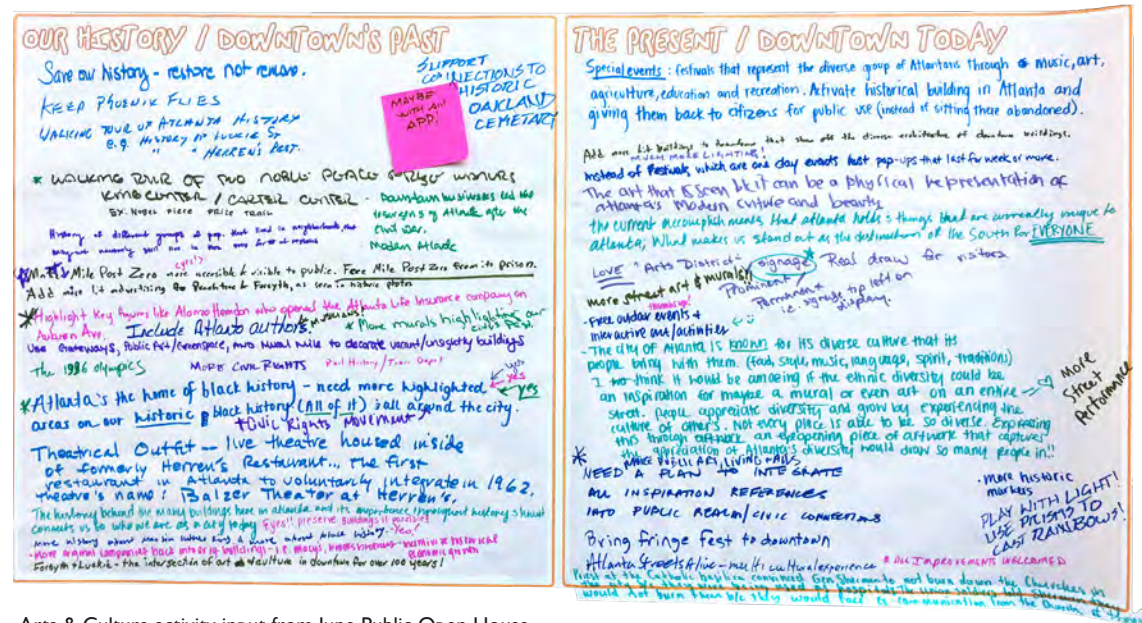 OUR HISTORY / DOWNTOWN'S PAST
Save our history - restore not remove.
KEEP PHOENIX FLIES
WALKING TOUR OF ATLANTA HISTORY
e.g. HISTORY OF LUCKIE ST
" " HERREN'S REST.
SUPPORT
CONNECTIONS TO
HISTORIC
OAKLAND
CEMETARY
MAYBE
WITH AN
APP!
* WALKING TOUR OF TWO NOBLE PEACE PRIZE WINNERS
KING CENTER / CARTER CENTER
EX. NOBEL PIECE PRIZE TRAIL
- Downtown businesses and the
insurgency Atlanta after the
Civil War.
Modern Atlanta
History of different groups of pop. that lived in neighborhoods that
Mile Post Zero more accessible & visible to public. Free Mile Post Zero from its prison.
Add more lit advertising @ Peachtree & Forsyth, as seen in historic photos
*Highlight Key figures like Alonzo Herndon who opened the Atlanta Life Insurance company on
Auburn Ave.
Include Atlanta authors.
* More murals highlighting our
civics past.
Use Gateways, Public Art/Greenspace, and Mural Mile to decorate vacant/unsightly buildings
The 1996 Olympics
MORE CIVIL RIGHTS
Rail History / Train Depot
*Atlanta's the home of black history - need more highlighted
yes
yes
areas on our historic & black history (All of it) all around the city.
+ Civil Rights Movement
Theatrical Outfit -- live theatre housed inside
of formerly Herren's Restaurant... The first
restaurant in Atlanta to voluntarily integrate in 1962.
theatre's name: Balzer Theater at Herren's.
The history behind the many buildings here in atlanta and its importance throughout history & how it
connects us to who we are as a city today
Yes!! preserve buildings if possible
More history about Martin Luther King & more about black history. Yes!
- More original companies back into orig buildings - i.e. macy's,
economic growth
Forsyth & Luckie - the intersection of art & culture in downtown for over 100 years!
THE PRESENT / DOWNTOWN TODAY
Special events: festivals that represent the diverse group of Atlantans through music, art,
agriculture, education and recreation. Activate historical building in Atlanta and
giving them back to citizens for public use (instead of sitting there abandoned).
Add more lit buildings to downtown that show off the diverse architecture of downtown buildings.
MUCH MORE LIGHTING!
Instead of Festivals which are one day events host pop-ups that last for week or more.
The art that is seen like it can be a physical representation of
atlanta's modern culture and beauty
the current accomplishments that atlanta holds: things that are currently unique to
atlanta, What makes us stand out as the destination of the South for EVERYONE
LOVE "Arts District" signage Real draw for visitors
Prominent /
Permanent
i.e. signage top left on
display.
more street art & murals!!
thumbs up!
- Free outdoor events +
interactive art/activities
- The city of Atlanta is known for its diverse culture that its
people bring with them. (food, style, music, language, spirit, traditions)
I think it would be amazing if the ethnic diversity could be
an inspiration for maybe a mural or even art on an entire
street. People appreciate diversity and grow by experiencing the
culture of other's. Not every place is able to be so diverse. Expressing
this through artwork an eyeopening piece of artwork that captures
the appreciation of Atlanta's diversity would draw so many people in!!
More
Street
Performance
*
MAKE PUBLIC ART, LIVING
NEED A PLAN TO INTEGRATE
ALL INSPIRATION REFERENCES
INTO PUBLIC REALM/CIVIC CONNECTIONS
- more historic
markers
PLAY WITH LIGHT!
USE PRISMS TO
CAST RAINBOWS!
Bring fringe fest to downtown
Atlanta Streets Alive - multi cultural experience
* ALL IMPROVEMENTS WELCOMED
Priest at the Catholic basilica convinced Gen Sherman to not burn down the Churches in
they were being used as hospitals. The Union soldiers told Sherman they
would not burn them b/c they would face ex-communication from the Church
Arts & Culture activity input from June Public Open House